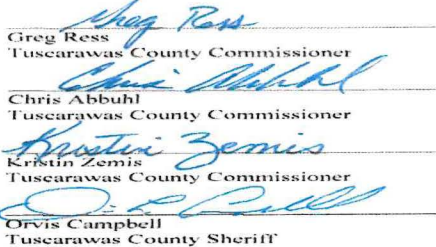 Greg Ress
Greg Ress
Tuscarawas County Commissioner
Chris Abbuhl
Chris Abbuhl
Tuscarawas County Commissioner
Kristin Zemis
Kristin Zemis
Tuscarawas County Commissioner
Orvis Campbell
Tuscarawas County Sheriff